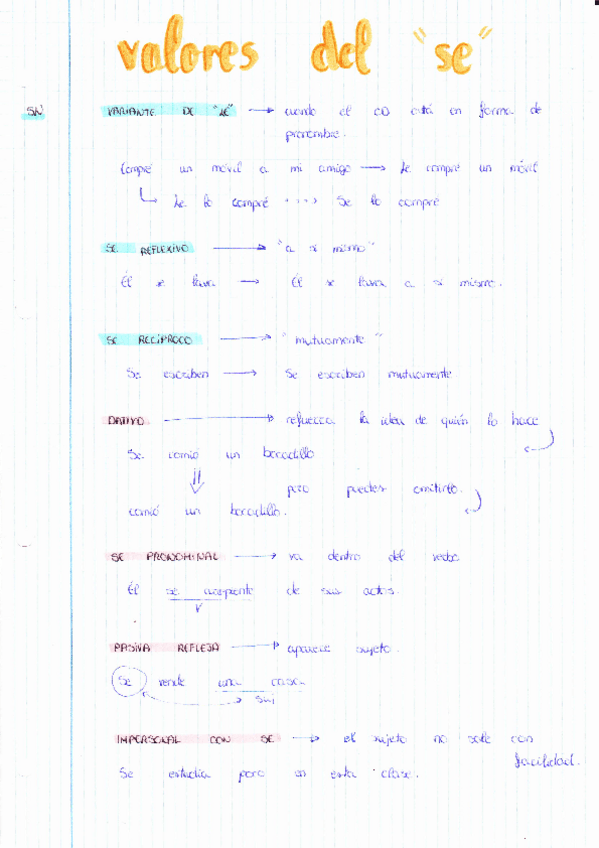 valores del "se"
SN VARIANTE DE "LE" → cuando el CD está en forma de
pronombre.
Compré un móvil a mi amigo → Le compré un móvil
Le lo compré ···> Se lo compré
SE REFLEXIVO → "a sí mismo"
Él se lava → Él se lava a sí mismo.
SE RECÍPROCO → "mutuamente"
Se escriben → Se escriben mutuamente
DATIVO → refuerza la idea de quién lo hace
Se comió un bocadillo
pero puedes omitirlo.
comió un bocadillo.
SE PRONOMINAL → va dentro del verbo
Él se arrepiente de sus actos.
V
PASIVA REFLEJA → aparece sujeto.
Se vende una casa
SUJ
IMPERSONAL CON SE → el sujeto no sale con
facilidad.
Se estudia poco en esta clase.